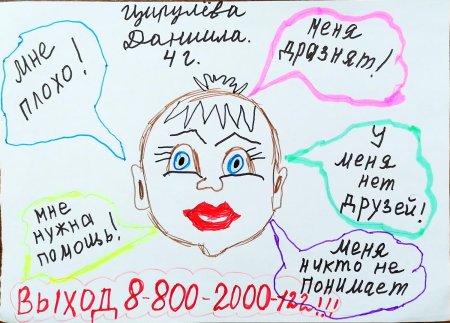 Цирулёва
Даниила.
4 г.
мне
плохо!
меня
дразнят!
у
меня
нет
друзей!
мне
нужна
помощь!
меня
никто не
понимает
Выход 8-800-2000-122!!!